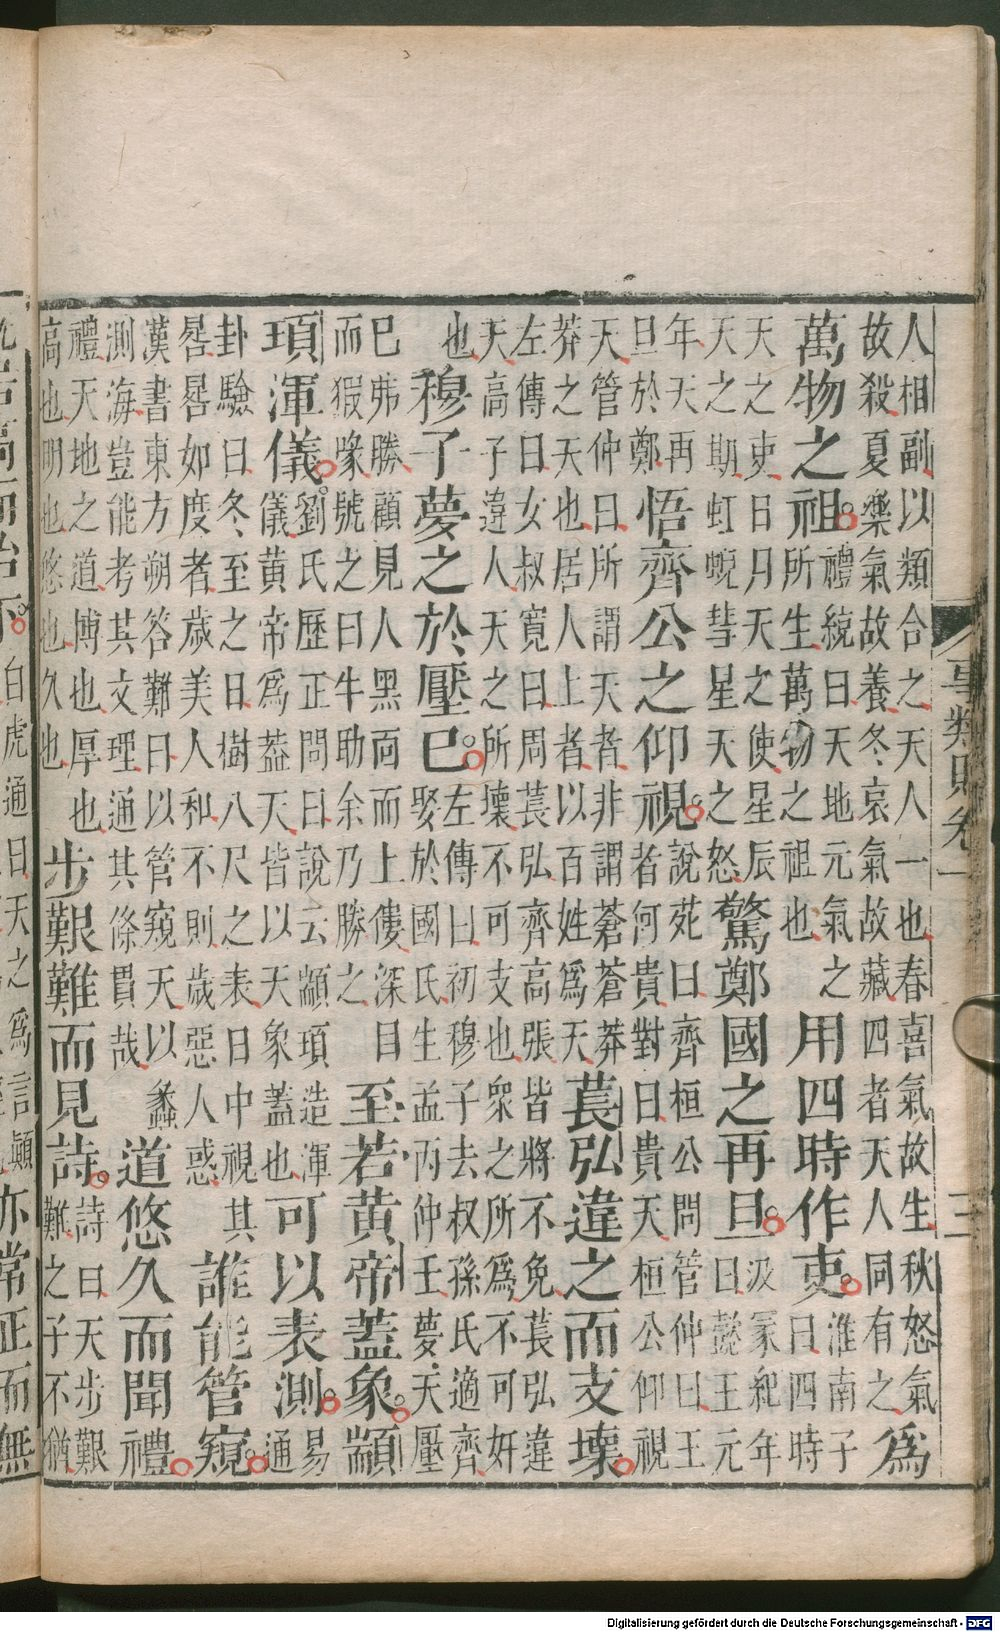 事類賦卷一
三
人相副以類合之天人一也春喜氣故生秋怒氣
故殺夏樂氣故養冬哀氣故藏四者天人同有之
為
萬物之祖
禮統曰天地元氣之
所生萬物之祖也
用四時作吏
淮南子
曰四時
天之吏日月天之使星辰
天之期虹蜺彗星天之怒
驚鄭國之再旦
汲冢紀年
曰懿王元
年天再
旦於鄭
悟齊公之仰視
說苑曰齊桓公問管仲曰王
者何貴對曰貴天桓公仰視
天管仲曰所謂天者非謂蒼蒼莽
莽之天也居人上者以百姓為天
萇弘違之而支壞
左傳曰女叔寬曰周萇弘齊高張皆將不免萇弘違
天高子違人天之所壞不可支也衆之所為不可奸
也
穆子夢之於壓已
左傳曰初穆子去叔孫氏適齊
娶於國氏生孟丙仲壬夢天壓
已弗勝顧見人黑靣而上僂深目
而猳喙號之曰牛助余乃勝之
至若黃帝蓋象顓
頊渾儀
劉氏歷正問曰說云顓頊造渾
儀黃帝為蓋天皆以天象蓋也
可以表測
易
通
卦驗曰冬至之日樹八尺之表日中視其
晷晷如度者歲美人和不則歲惡人惑
誰能管窺
漢書東方朔答難曰以管窺天以蠡
測海豈能考其文理通其條貫哉
道悠久而聞禮
禮天地之道博也厚也
高也明也悠也久也
步艱難而見詩
詩曰天步艱
難之子不猶
白虎通曰天之為言顛
亦常正而無
Digitalisierung gefördert durch die Deutsche Forschungsgemeinschaft - DFG